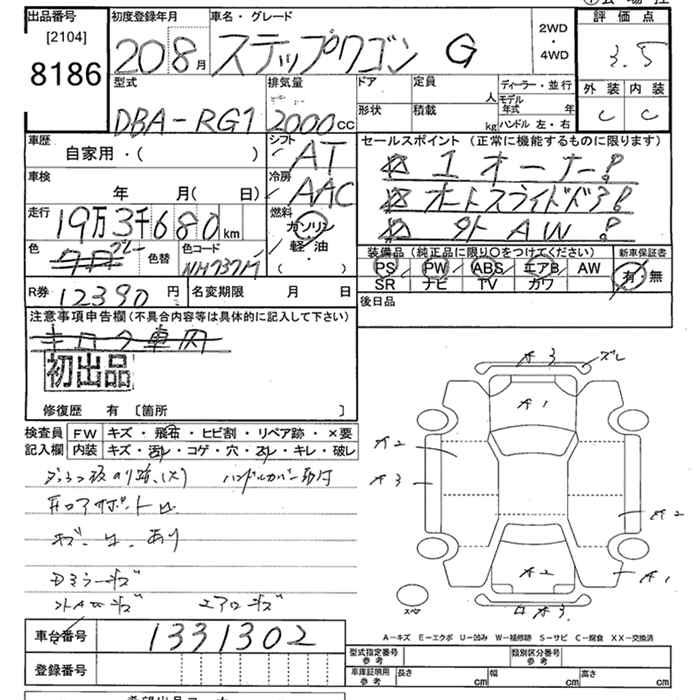 出品番号
[2104]
8186
初度登録年月
20 8月
車名・グレード
ステップワゴン G
2WD
・
4WD
評価点
3.5
外装 内装
C C
型式
DBA-RG1
排気量
2000cc
ドア
定員
人
形状
積載
kg
ディーラー・並行
モデル年式 年
ハンドル 左・右
車歴
自家用・( )
シフト
AT
セールスポイント (正常に機能するものに限ります)
1オーナー!
オートスライドドア!
外AW!
車検
年 月( 日)
冷房
AAC
走行
19万3千680km
燃料
ガソリン
・軽油
( ・ )
色
グレー
色替
色コード
NH737M
装備品 (純正品に限り○をつけてください)
PS PW ABS エアB AW
SR ナビ TV カワ
新車保証書
有・無
R券 12390円
名変期限 月 日
後日品
注意事項申告欄(不具合内容等は具体的に記入して下さい)
初出品
修復歴 有 [箇所 ]
検査員記入欄
FW キズ・飛石・ヒビ割・リペア跡・×要
内装 キズ・汚レ・コゲ・穴・スレ・キレ・破レ
ハンドルカバー取付
キズ・凹・あり
Dミラーキズ
外AWキズ エアロキズ
A3 ズレ
A1
A2
A3
A2
A2
A1
A3
スペア
A-キズ E-エクボ U-凹み W-補修跡 S-サビ C-腐食 XX-交換済
車台番号 1331302
登録番号
型式指定番号 参考
類別区分番号 参考
車庫証明用 参考
長さ cm
幅 cm
高さ cm